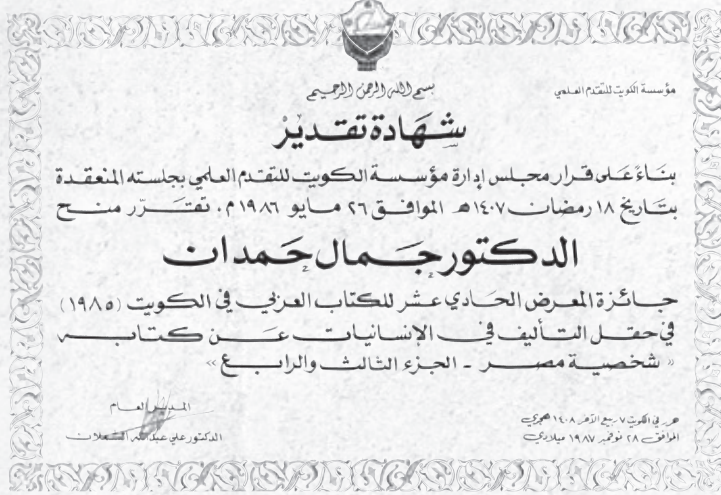 مؤسسة الكويت للتقدم العلمي
بسم الله الرحمن الرحيم
شهادة تقدير
بناءً على قرار مجلس إدارة مؤسسة الكويت للتقدم العلمي بجلسته المنعقدة
بتاريخ ١٨ رمضان ١٤٠٧هـ الموافق ٢٦ مايو ١٩٨٦م، تقرّر منح
الدكتور جمال حمدان
جائزة المعرض الحادي عشر للكتاب العربي في الكويت (١٩٨٥)
في حقل التأليف في الإنسانيات عن كتابه
« شخصية مصر - الجزء الثالث والرابع »
المدير العام
الدكتور علي عبدالله الشملان
حرر في الكويت ٧ ربيع الآخر ١٤٠٨ هجري
الموافق ٢٨ نوفمبر ١٩٨٧ ميلادي